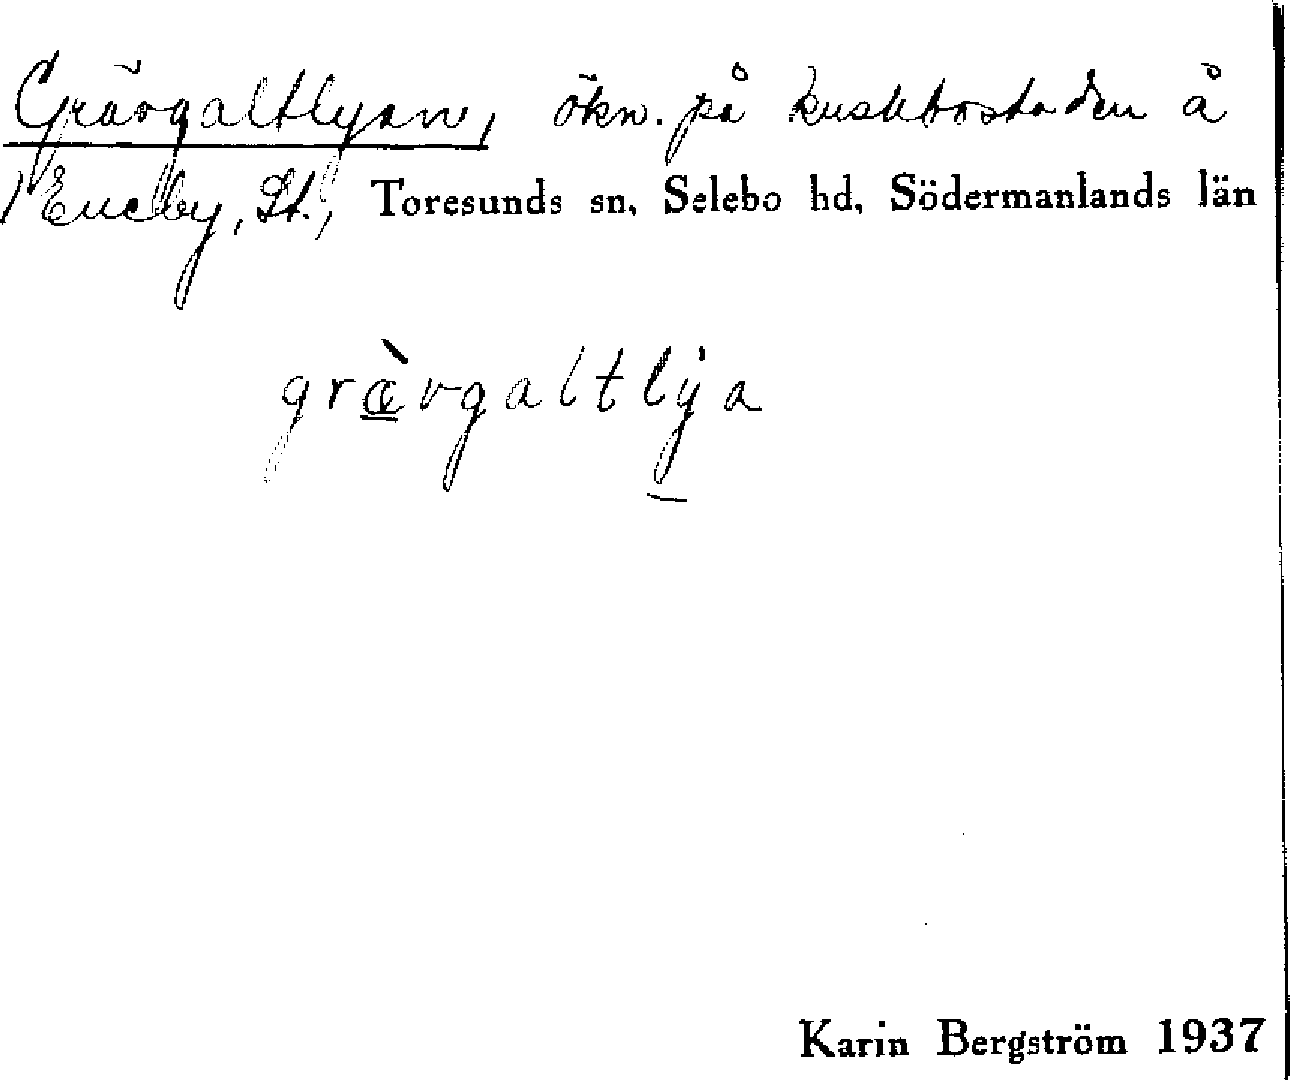 Grävgaltlyan, ökn. på kuskbostaden å
Eneby, St., Toresunds sn, Selebo hd, Södermanlands län
græ̀vgaltlỳa
Karin Bergström 1937